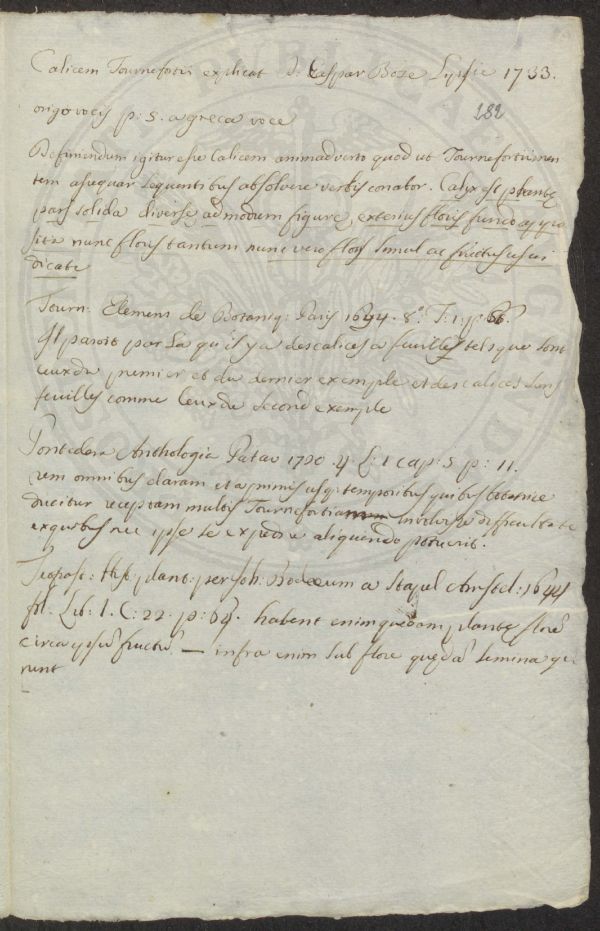 Calicem Tournefortii explicat D: Caspar Bose Lypsie 1733.
282
origo vocis p: 5. a greca voce
Definiendum igitur esse Calicem animadverto quod ut Tournefortii men
tem assequar sequentibus absolvere verbis conabor. Calyx est plantę
pars solida diversę admodum figurę, exterius floris fundo appo
sita nunc floris tantum nunc vero floris simul ac fructus usui
dicata
Tourn: Elemens de Botaniq: Paris 1694. 8º. T: 1: p
Il paroit par la qu'il y a des calices a feuilles tels que sont
ceux du premier et du dernier exemple et des calices sans
feuilles comme ceux du second exemple
Pontedera Anthologia Patav 1720. 4. L: 1 cap: 5 p: 11.
rem omnibus claram et a primis usq; temporibus quibus botanice
ducitur receptam multis Tournefortia involvisse difficultate
ex quibus nec ipse se expedire aliquando potuerit.
Teopast: Hist: plant: per Joh: Bodeum a Stapel Amstel: 1644
fol. Lib: 1. C: 22. p: 64. habent enim quędam plantę florē
circa ipsū fructū — infra enim sub flore quędā semina ge
runt